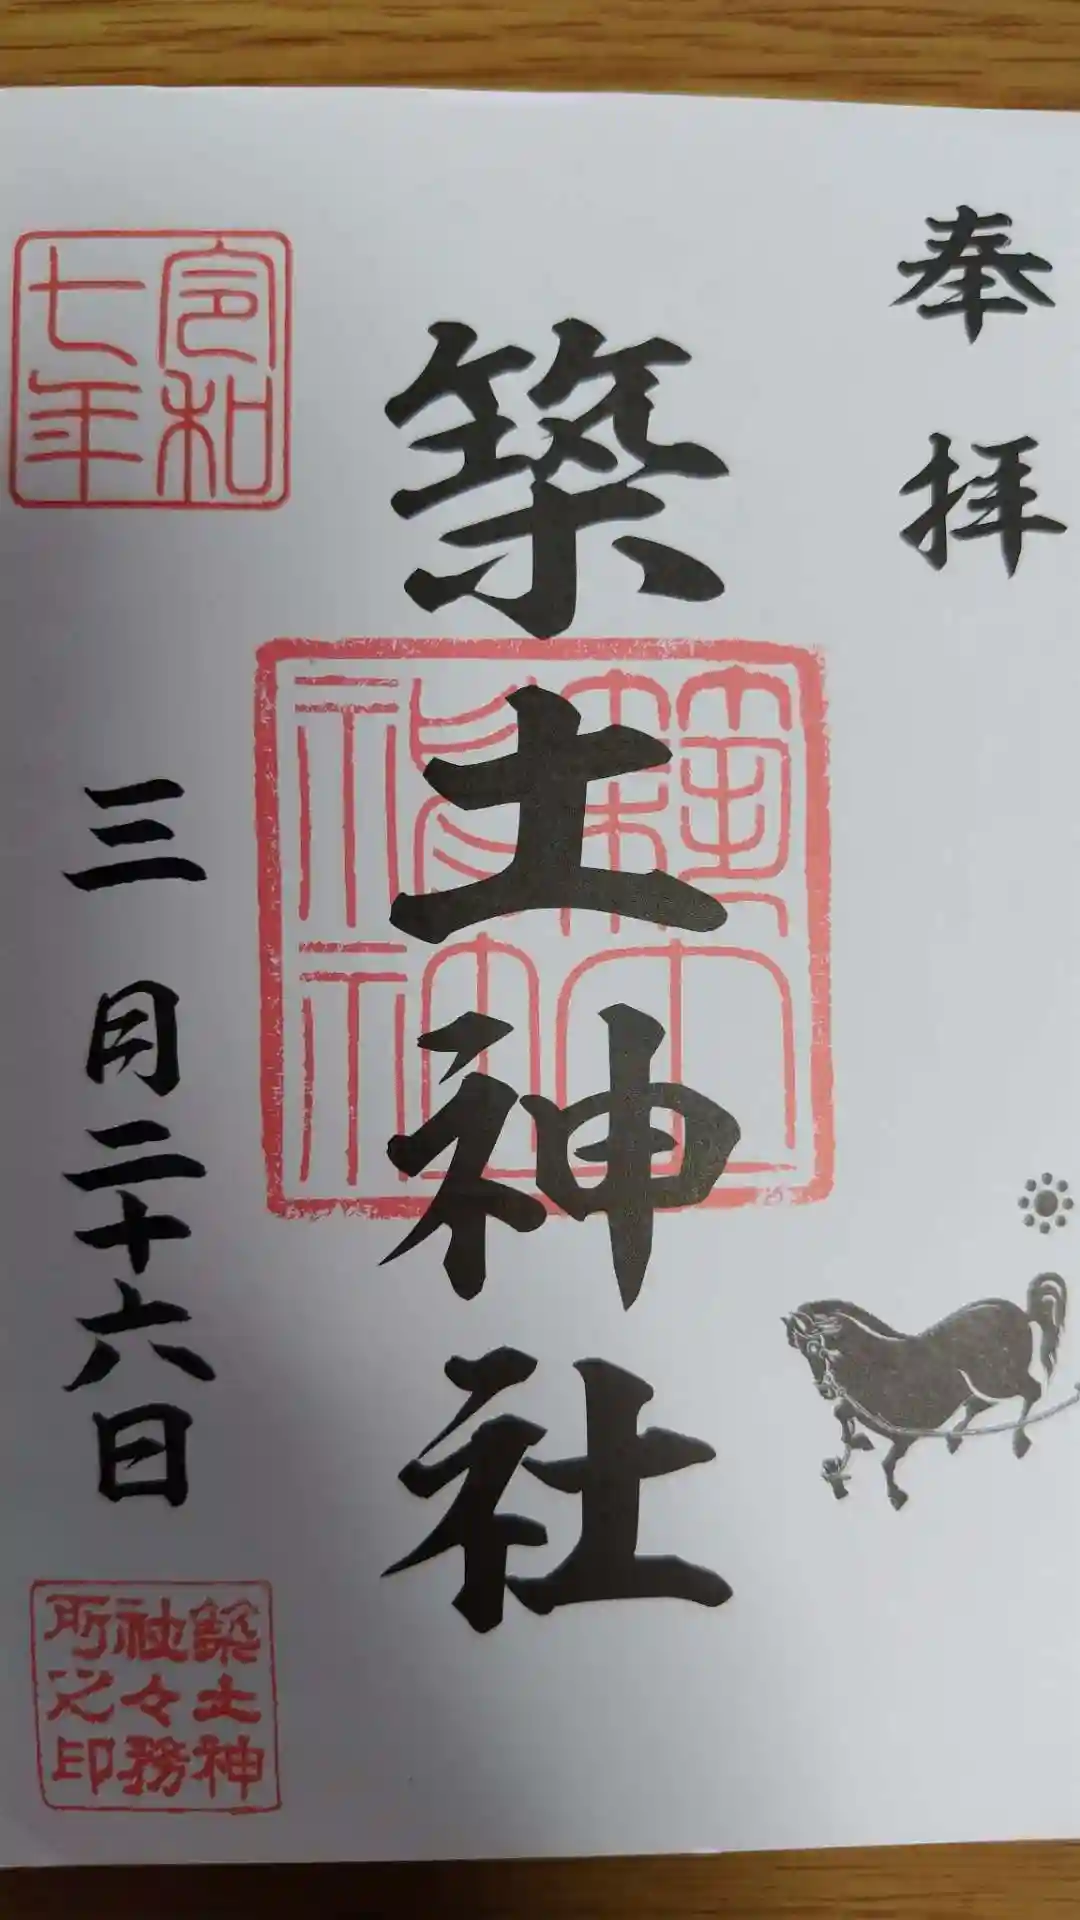 奉拝
築土神社
築土神社
令和七年
三月二十六日
築土神社々務所之印